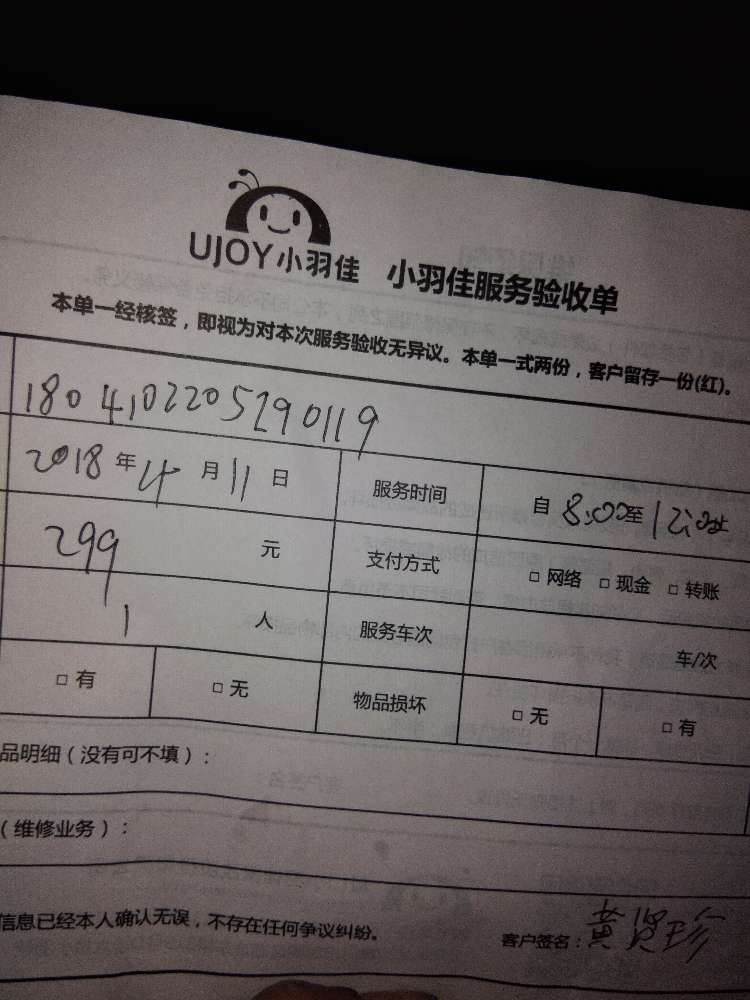 UJOY小羽佳 小羽佳服务验收单
本单一经核签，即视为对本次服务验收无异议。本单一式两份，客户留存一份(红)。
1804102205290119
2018年4月11日 服务时间 自8:00至12:00止
299元 支付方式 □ 网络 □ 现金 □ 转账
1人 服务车次 车/次
□ 有 □ 无 物品损坏 □ 无 □ 有
品明细（没有可不填）：
（维修业务）：
信息已经本人确认无误，不存在任何争议纠纷。 客户签名：黄贤珍